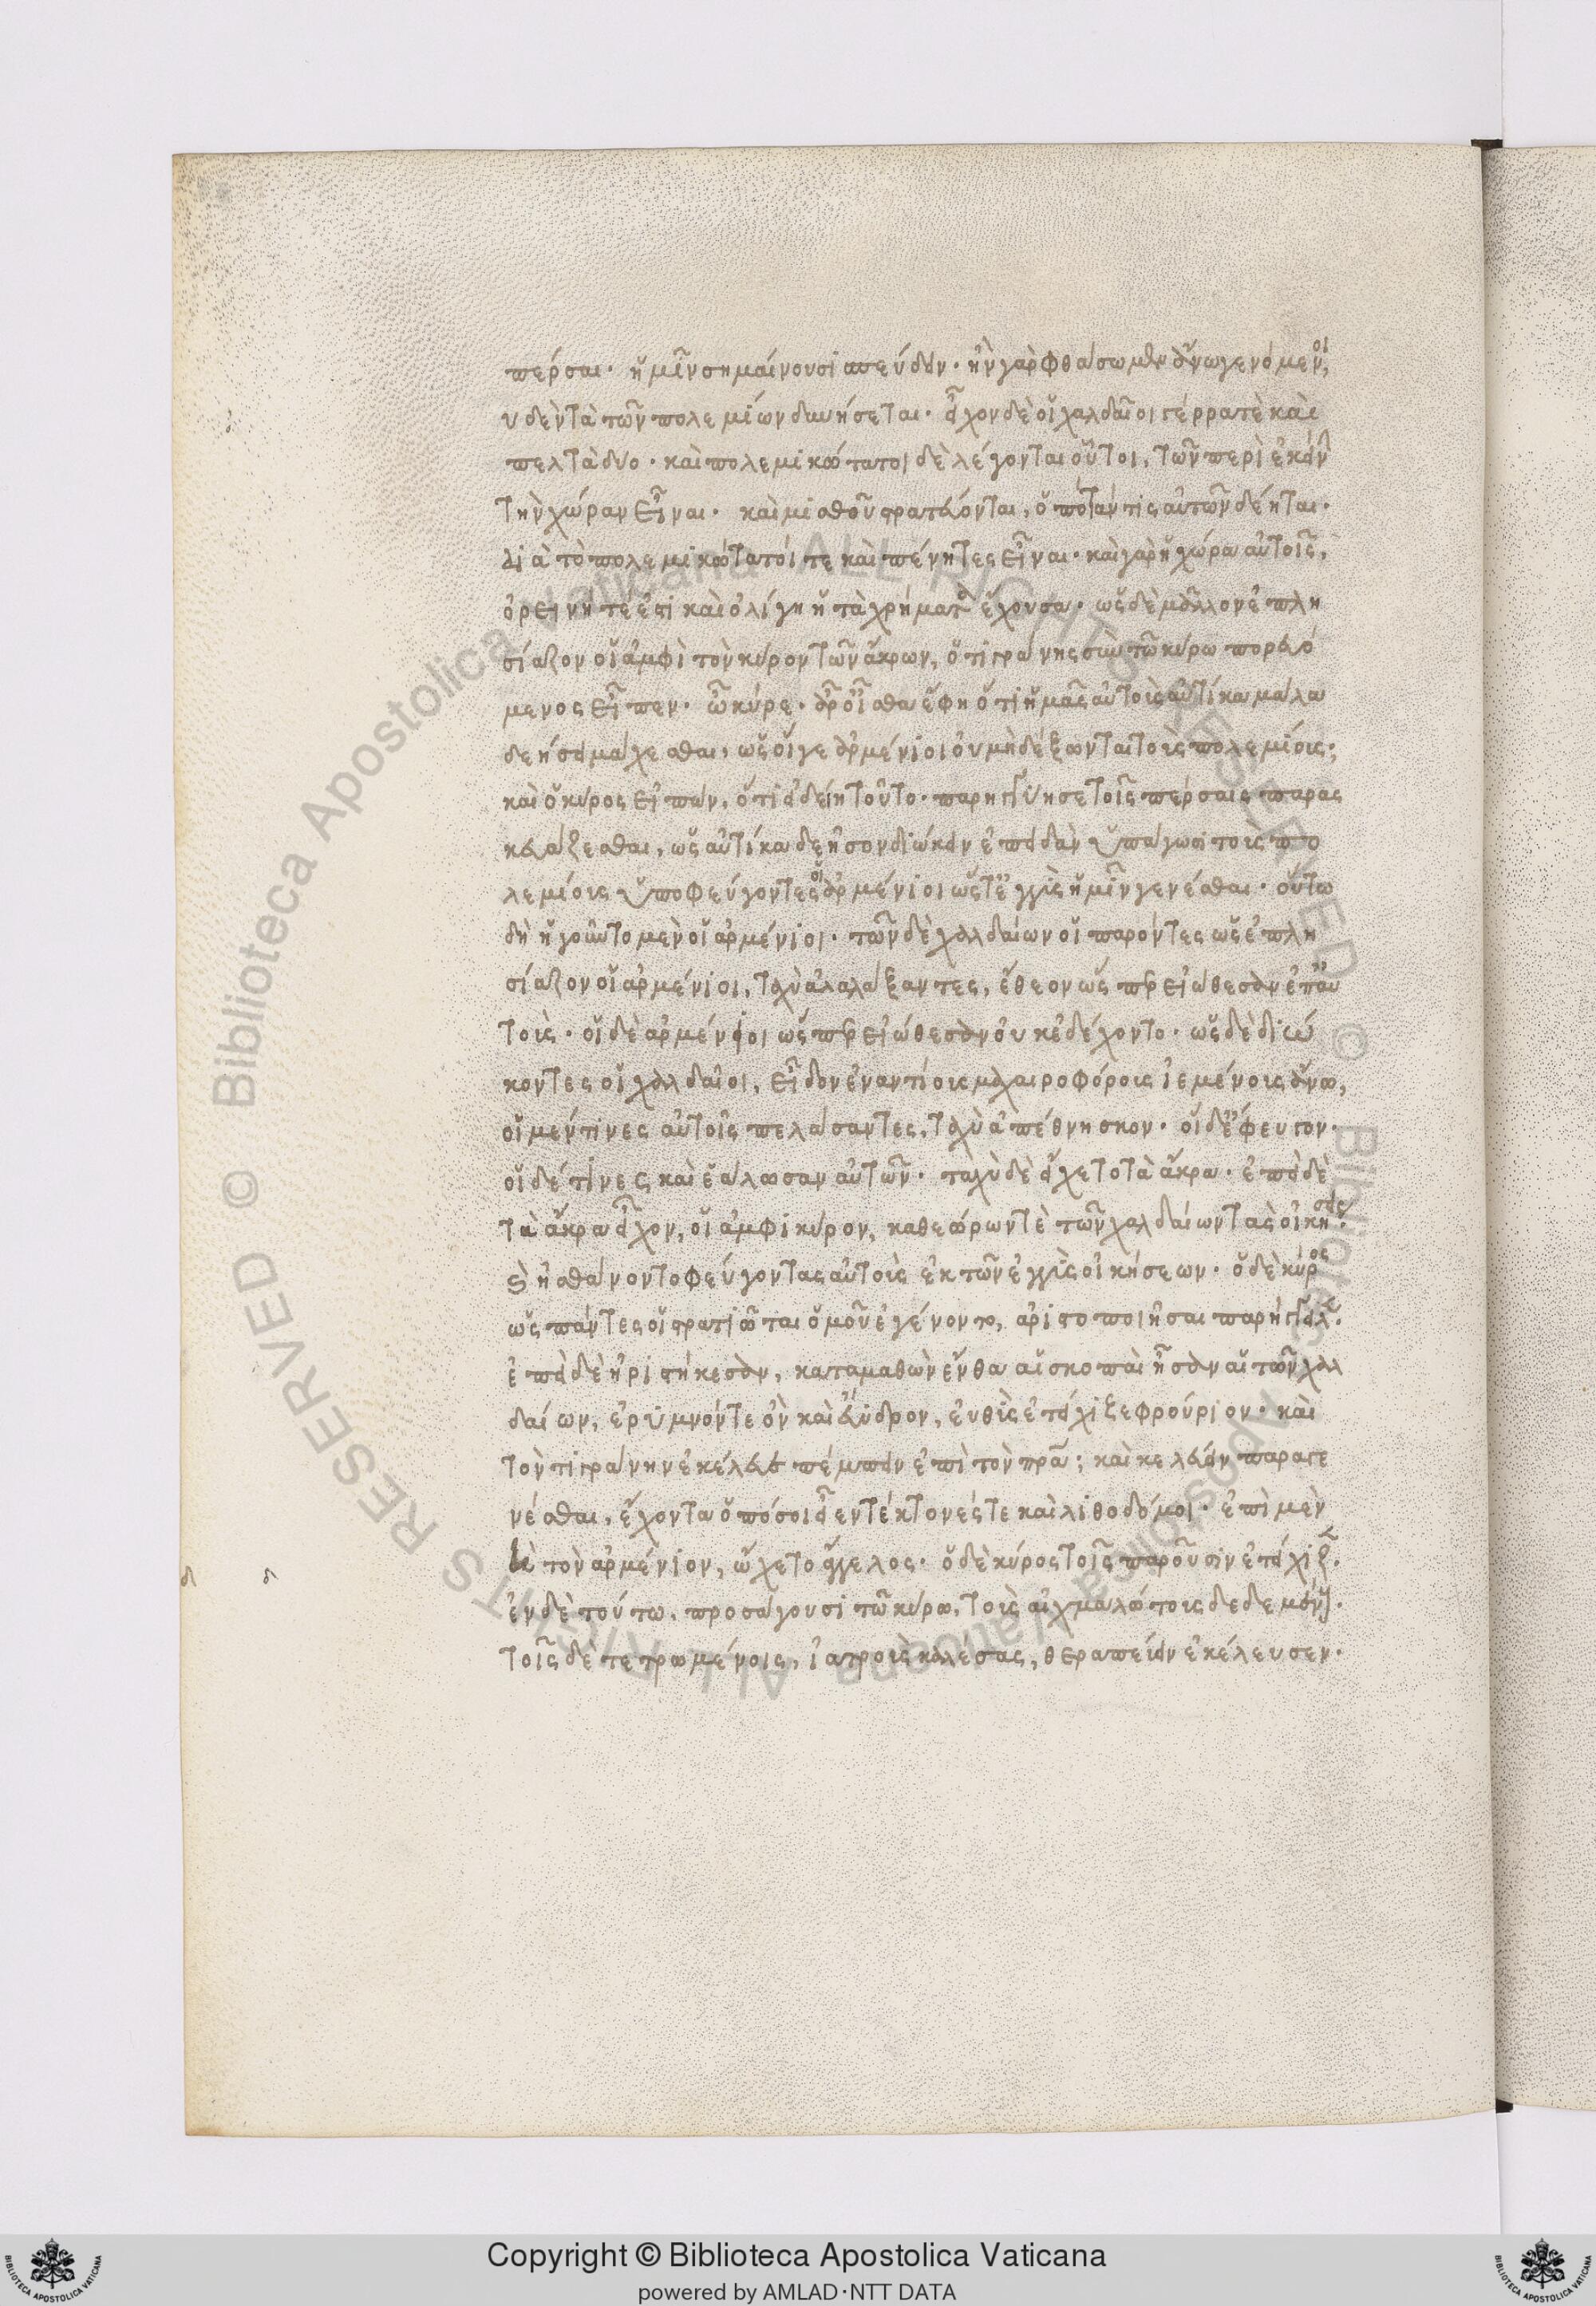 πέρσαι· ἡμῖν σημαίνουσι σπεύδειν· ἢν γὰρ φθάσωμεν ἄνω γενόμενοι,
οὐδὲν τὰ τῶν πολεμίων δυνήσεται· εἶχον δὲ οἱ χαλδαῖοι γέρρα τὲ καὶ
πελτὰ δύο· καὶ πολεμικώτατοι δὲ λέγονται οὗτοι, τῶν περὶ ἐκείνην
τὴν χώραν εἶναι· καὶ μισθοῦ στρατεύονται, ὁπόταν τις αὐτῶν δέηται·
διὰ τὸ πολεμικώτατοί τε καὶ πένητες εἶναι· καὶ γὰρ ἡ χώρα αὐτοῖς,
ὀρεινή τέ ἐστι καὶ ὀλίγη ἡ τὰ χρήματα ἔχουσα· ὡς δὲ μᾶλλον ἐπλη
σίαζον οἱ ἀμφὶ τὸν κῦρον τῶν ἄκρων, ὁ τιγράνης σὺν τῶ κύρω πορευό
μενος εἶπεν· ὦ κῦρε· ἆρ οἶσθα ἔφη ὅτι ἡμᾶς αὐτοὺς αὐτίκα μάλα
δεήσει μάχεσθαι, ὡς οἵ γε ἀρμένιοι οὐ μὴ δέξωνται τοὺς πολεμίους·
καὶ ὁ κῦρος εἰπὼν, ὅτι εἰδείη τοῦτο· παρηγγύησε τοῖς πέρσαις παρας
κευάζεσθαι, ὡς αὐτίκα δεῆσον διώκειν ἐπειδὰν ὑπάγωσι τοὺς πο
λεμίους ὑποφεύγοντες οἱ ἀρμένιοι ὥστ' ἐγγὺς ἡμῖν γενέσθαι· οὕτω
δὴ ἡγοῦντο μὲν οἱ ἀρμένιοι· τῶν δὲ χαλδαίων οἱ παρόντες ὡς ἐπλη
σίαζον οἱ ἀρμένιοι, ταχὺ ἀλαλάξαντες, ἔθεον ὥσπερ εἰώθεσαν ἐπ' αὐ
τούς· οἱ δὲ ἀρμένιοι ὥσπερ εἰώθεσαν οὐκ ἐδέχοντο· ὡς δὲ διώ
κοντες οἱ χαλδαῖοι, εἶδον ἐναντίους μαχαιροφόρους ἱεμένους ἄνω,
οἱ μέν τινες αὐτοῖς πελάσαντες, ταχὺ ἀπέθνησκον· οἱ δ' ἔφευγον·
οἱ δέ τινες καὶ ἑάλωσαν αὐτῶν· ταχὺ δὲ εἴχετο τὰ ἄκρα· ἐπεὶ δὲ
τὰ ἄκρα εἶχον, οἱ ἀμφὶ κῦρον, καθεώρων τὲ τῶν χαλδαίων τὰς οἰκήσεις·
καὶ ἠσθάνοντο φεύγοντας αὐτοὺς ἐκ τῶν ἐγγὺς οἰκήσεων· ὁ δὲ κῦρος
ὡς πάντες οἱ στρατιῶται ὁμοῦ ἐγένοντο, ἀριστοποιῆσαι παρήγγειλε·
ἐπεὶ δὲ ἠριστήκεσαν, καταμαθὼν ἔνθα αἱ σκοπαὶ ἦσαν αἱ τῶν χαλ
δαίων, ἐρυμνόν τε ὂν καὶ εὔυδρον, εὐθὺς ἐτείχιζε φρούριον· καὶ
τὸν τιγράνην ἐκέλευσε πέμπειν ἐπὶ τὸν πρα; καὶ κελεύειν παραγε
νέσθαι, ἔχοντα ὁπόσοι εἶεν τέκτονές τε καὶ λιθοδόμοι· ἐπὶ μὲν
δὲ τὸν ἀρμένιον, ὤχετο ἄγγελος· ὁ δὲ κῦρος τοῖς παροῦσιν ἐτείχιζε·
ἐν δὲ τούτω, προσάγουσι τῶ κύρω, τοὺς αἰχμαλώτους δεδεμένους·
τοῖς δὲ τετρωμένοις, ἰατροὺς καλέσας, θεραπεύειν ἐκέλευσεν·
© Biblioteca Apostolica Vaticana ALL RIGHTS RESERVED © Biblioteca Apostolica Vaticana ALL RIGHTS RESERVED
Copyright © Biblioteca Apostolica Vaticana
powered by AMLAD·NTT DATA